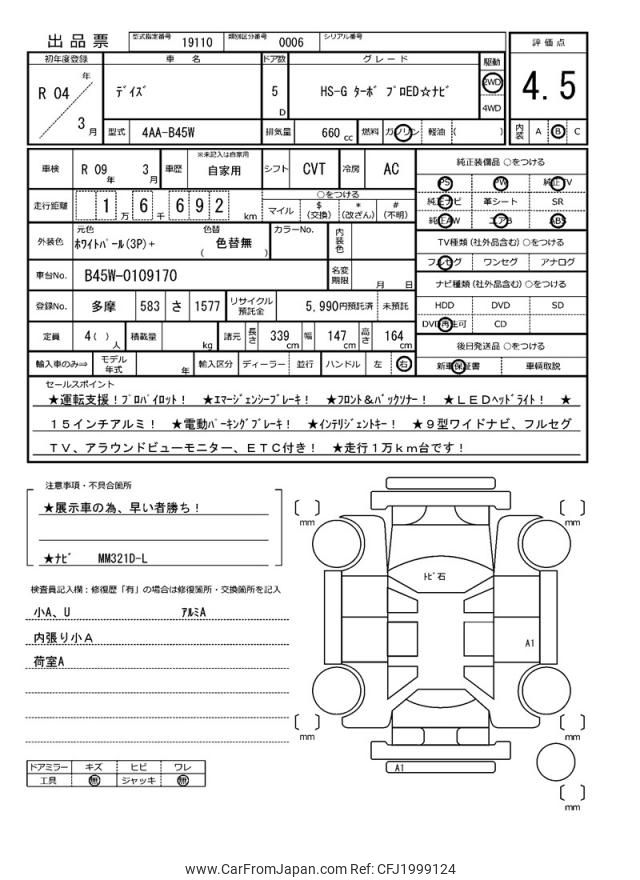 出品票
型式指定番号 19110 類別区分番号 0006 シリアル番号
初年度登録 車 名 ドア数 グレード 駆動 評価点
R 04 年 ﾃﾞｲｽﾞ 5 D HS-G ﾀｰﾎﾞ ﾌﾟﾛED☆ﾅﾋﾞ 2WD 4.5
4WD
3 月 型式 4AA-B45W 排気量 660 cc 燃料 ガソリン 軽油 ( ) 内装 A B C
車検 R 09 年 3 月 車歴 ※未記入は自家用 自家用 シフト CVT 冷房 AC 純正装備品 ○をつける
PS PW 純正TV
走行距離 1 万 6 千 6 9 2 km ○をつける 純正ナビ 革シート SR
マイル $ (交換) * (改ざん) # (不明) 純正AW エアB ABS
外装色 元色 ﾎﾜｲﾄﾊﾟｰﾙ(3P)+ 色替 ( 色替無 ) カラーNo. 内装色 TV種類 (社外品含む) ○をつける
フルセグ ワンセグ アナログ
車台No. B45W-0109170 名変期限 月 日 ナビ種類 (社外品含む) ○をつける
登録No. 多摩 583 さ 1577 リサイクル預託金 5,990円預託済 未預託 HDD DVD SD
DVD再生可 CD
定員 4 ( ) 人 積載量 kg 諸元 長さ 339 cm 幅 147 cm 高さ 164 cm 後日発送品 ○をつける
輸入車のみ⇒ モデル年式 年 輸入区分 ディーラー 並行 ハンドル 左 右 新車保証書 車輌取説
セールスポイント
★運転支援！ﾌﾟﾛﾊﾟｲﾛｯﾄ！ ★ｴﾏｰｼﾞｪﾝｼｰﾌﾞﾚｰｷ！ ★ﾌﾛﾝﾄ&ﾊﾞｯｸｿﾅｰ！ ★ＬＥＤﾍｯﾄﾞﾗｲﾄ！ ★
１５インチアルミ！ ★電動ﾊﾟｰｷﾝｸﾞﾌﾞﾚｰｷ！ ★ｲﾝﾃﾘｼﾞｪﾝﾄｷｰ！ ★９型ワイドナビ、フルセグ
ＴＶ、アラウンドビューモニター、ＥＴＣ付き！ ★走行１万ｋｍ台です！
注意事項・不具合箇所
★展示車の為、早い者勝ち！
★ﾅﾋﾞ MM321D-L
検査員記入欄：修復歴「有」の場合は修復箇所・交換箇所を記入
小A、U ｱﾙﾐA
内張り小A
荷室A
ドアミラー キズ ヒビ ワレ
工具 無 ジャッキ 無
mm
mm
ﾄﾋﾞ石
A1
mm
mm
A1
mm
www.CarFromJapan.com Ref: CFJ1999124